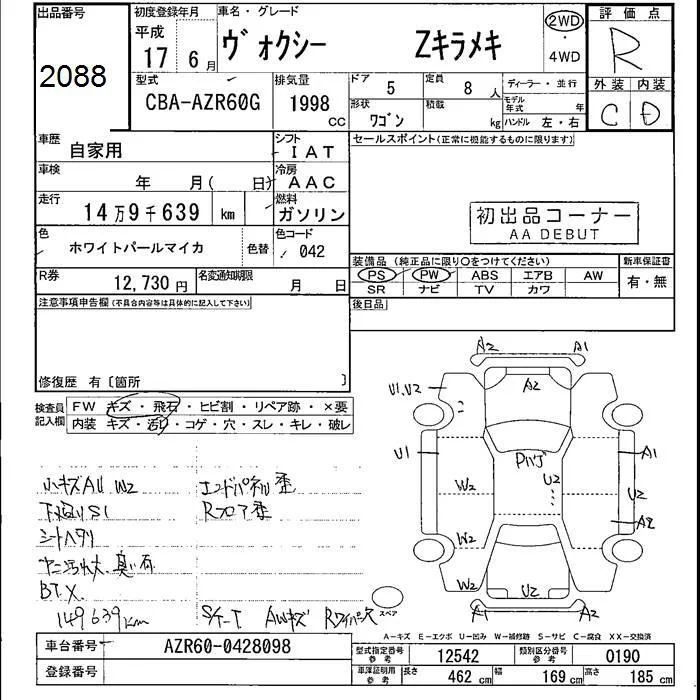 出品番号
2088
初度登録年月
平成
17 6月
車名・グレード
ヴォクシー Zキラメキ
2WD
・
4WD
評価点
R
外装 内装
C D
型式
CBA-AZR60G
排気量
1998 cc
ドア 5
定員 8 人
形状 ワゴン
積載 kg
ディーラー・並行
モデル年式 年
ハンドル 左・右
車歴 自家用
シフト IAT
車検 年 月( 日)
冷房 AAC
走行 14万9千639 km
燃料 ガソリン
色 ホワイトパールマイカ 色替
色コード 042
R券 12,730円
名変通知期限 月 日
セールスポイント(正常に機能するものに限ります)
初出品コーナー
AA DEBUT
装備品 (純正品に限り○をつけてください)
PS PW ABS エアB AW
SR ナビ TV カワ
新車保証書
有・無
後日品
注意事項申告欄(不具合内容等は具体的に記入して下さい)
修復歴 有〔箇所 〕
検査員記入欄
FW キズ・飛石・ヒビ割・リペア跡・×要
内装 キズ・汚れ・コゲ・穴・スレ・キレ・破レ
小キズAU W2
エンドパネル歪
下廻りS1
Rフロア歪
シートヘタリ
ヤニ汚れ大、臭い有
BT.X
149639km
S/ケーT AWキズ Rワイパー欠
A2 A1
A2
U1.U2
U1
Pハゲ
A1
U2
W2
U2
A2
W2
W2
U2
A1 A2
スペア
A-キズ E-エクボ U-凹み W-補修跡 S-サビ C-腐食 XX-交換済
車台番号 AZR60-0428098
登録番号
型式指定番号 参考 12542
類別区分番号 参考 0190
車庫証明用 参考 長さ 462 cm 幅 169 cm 高さ 185 cm